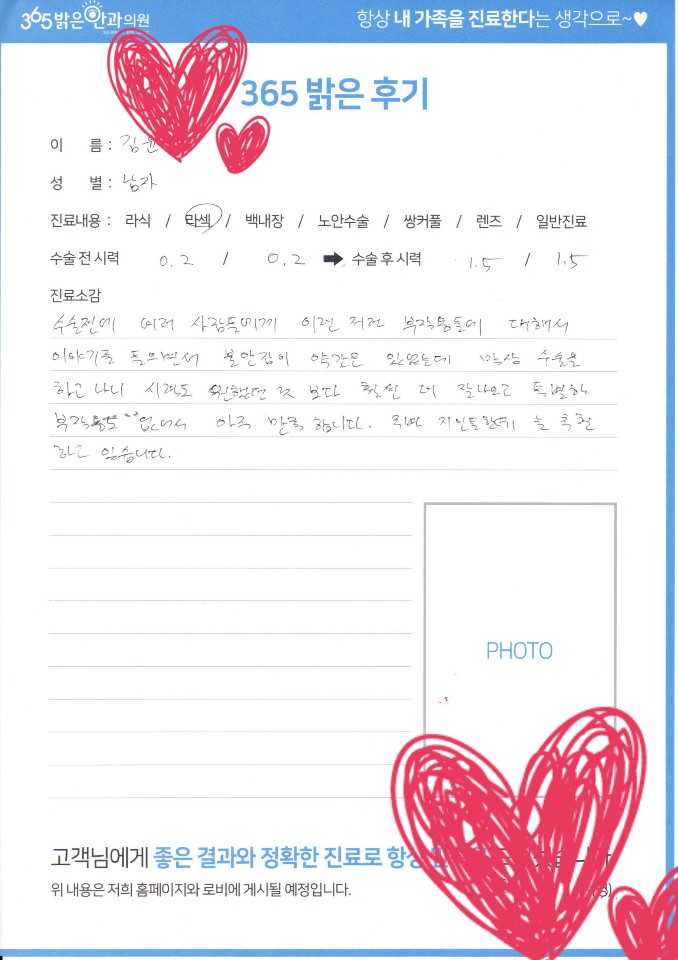 365밝은안과의원
항상 내 가족을 진료한다는 생각으로~♥
365 밝은 후기
이 름 : 김윤
성 별 : 남자
진료내용 : 라식 / 라섹 / 백내장 / 노안수술 / 쌍커풀 / 렌즈 / 일반진료
수술 전 시력 0.2 / 0.2 ➡ 수술 후 시력 1.5 / 1.5
진료소감
수술전에 여러 사람들에게 이런 저런 부작용들에 대해서
이야기를 들으면서 불안감이 약간은 있었는데 막상 수술을
하고 나니 시력도 원했던 것 보다 훨씬 더 잘나오고 특별한
부작용도 없어서 아주 만족합니다. 주변 지인들한테 늘 추천
하고 있습니다.
PHOTO
고객님에게 좋은 결과와 정확한 진료로 항상
위 내용은 저희 홈페이지와 로비에 게시될 예정입니다.